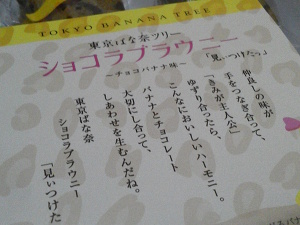 TOKYO BANANA TREE
東京ばな奈ツリー
ショコラブラウニー
「見ぃつけたっ」
~チョコバナナ味~
仲良しの味が
手をつなぎ合って、
「きみが主人公」
ゆずり合ったら、
こんなにおいしいハーモニー。
バナナとチョコレート
大切にし合って、
しあわせを生むんだね。
東京ばな奈
ショコラブラウニー
「見ぃつけた